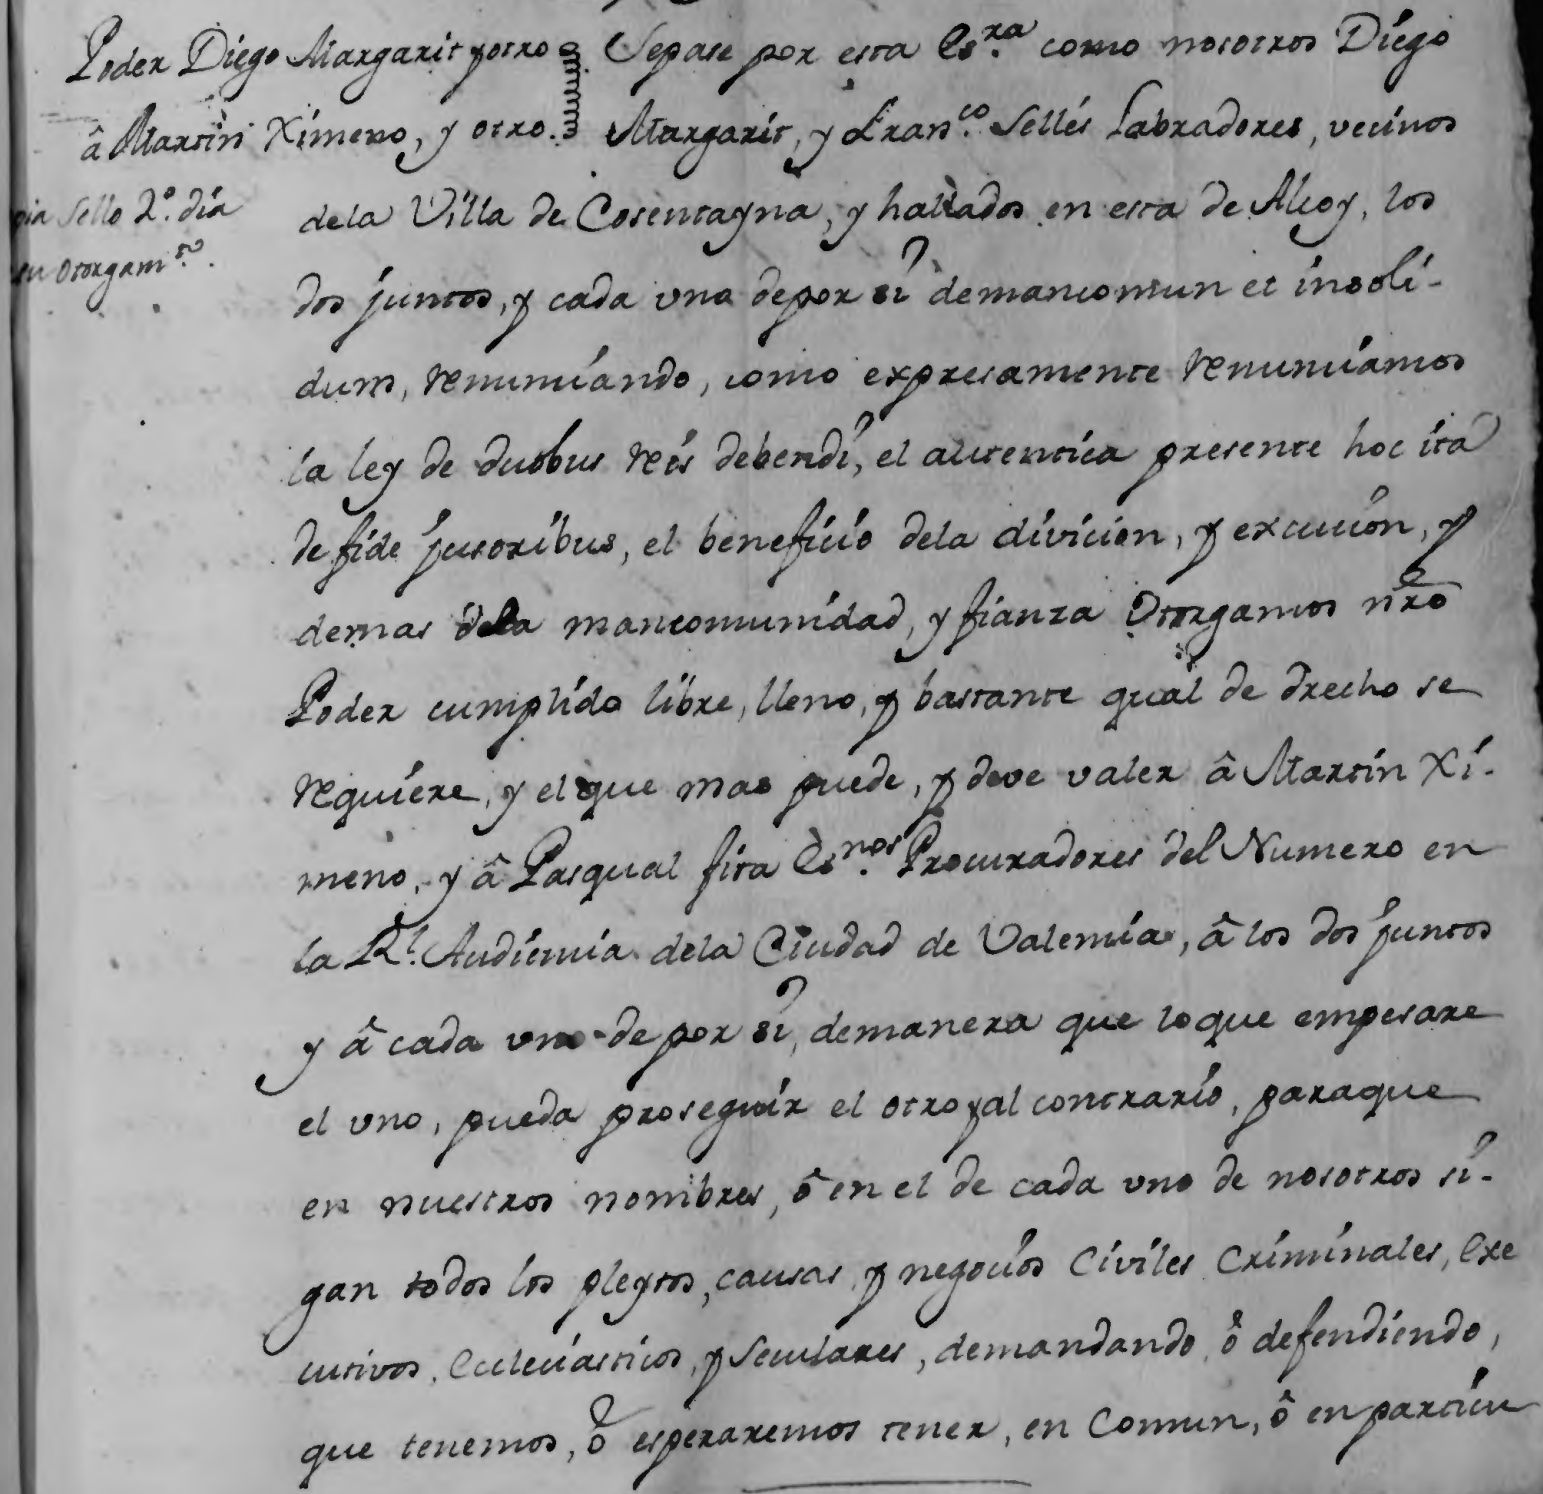 Poder Diego Margarit y otro
â Martin Ximeno, y otro.
Sello 2.º dia
otorgam.to.
Sepase por esta Es.ra como nosotros Diego
Margarit, y Fran.co Sellés Labradores, vecinos
dela Villa de Cosentayna, y hallados en esta de Alcoy, los
dos juntos, y cada uno depor sî demancomun et insoli-
dum, renunciando, como expresamente renunciamos
la ley de duobus reis debendi, el autentica presente hoc ita
de fide jusoribus, el beneficio dela divicion, y excucion, y
demas dela mancomunidad, y fianza Otorgamos nrõ
Poder cumplido libre, lleno, y bastante qual de drecho se
requiere, y el que mas puede, y deve valer â Martin Xi-
meno, y â Pasqual fita Es.nos Procuradores del Numero en
la R.l Audiencia dela Ciudad de Valencia, â los dos juntos
y â cada uno de por sî, demanera que loque empesare
el uno, pueda proseguir el otro y al contrario, paraque
en nuestros nombres, ô en el de cada uno de nosotros si-
gan todos los pleytos, causas y negocios Civiles Criminales, Exe
cutivos, Eclesiasticos, y Seculares, demandando, ô defendiendo,
que tenemos, ô esperaremos tener, en Comun, ô en particu